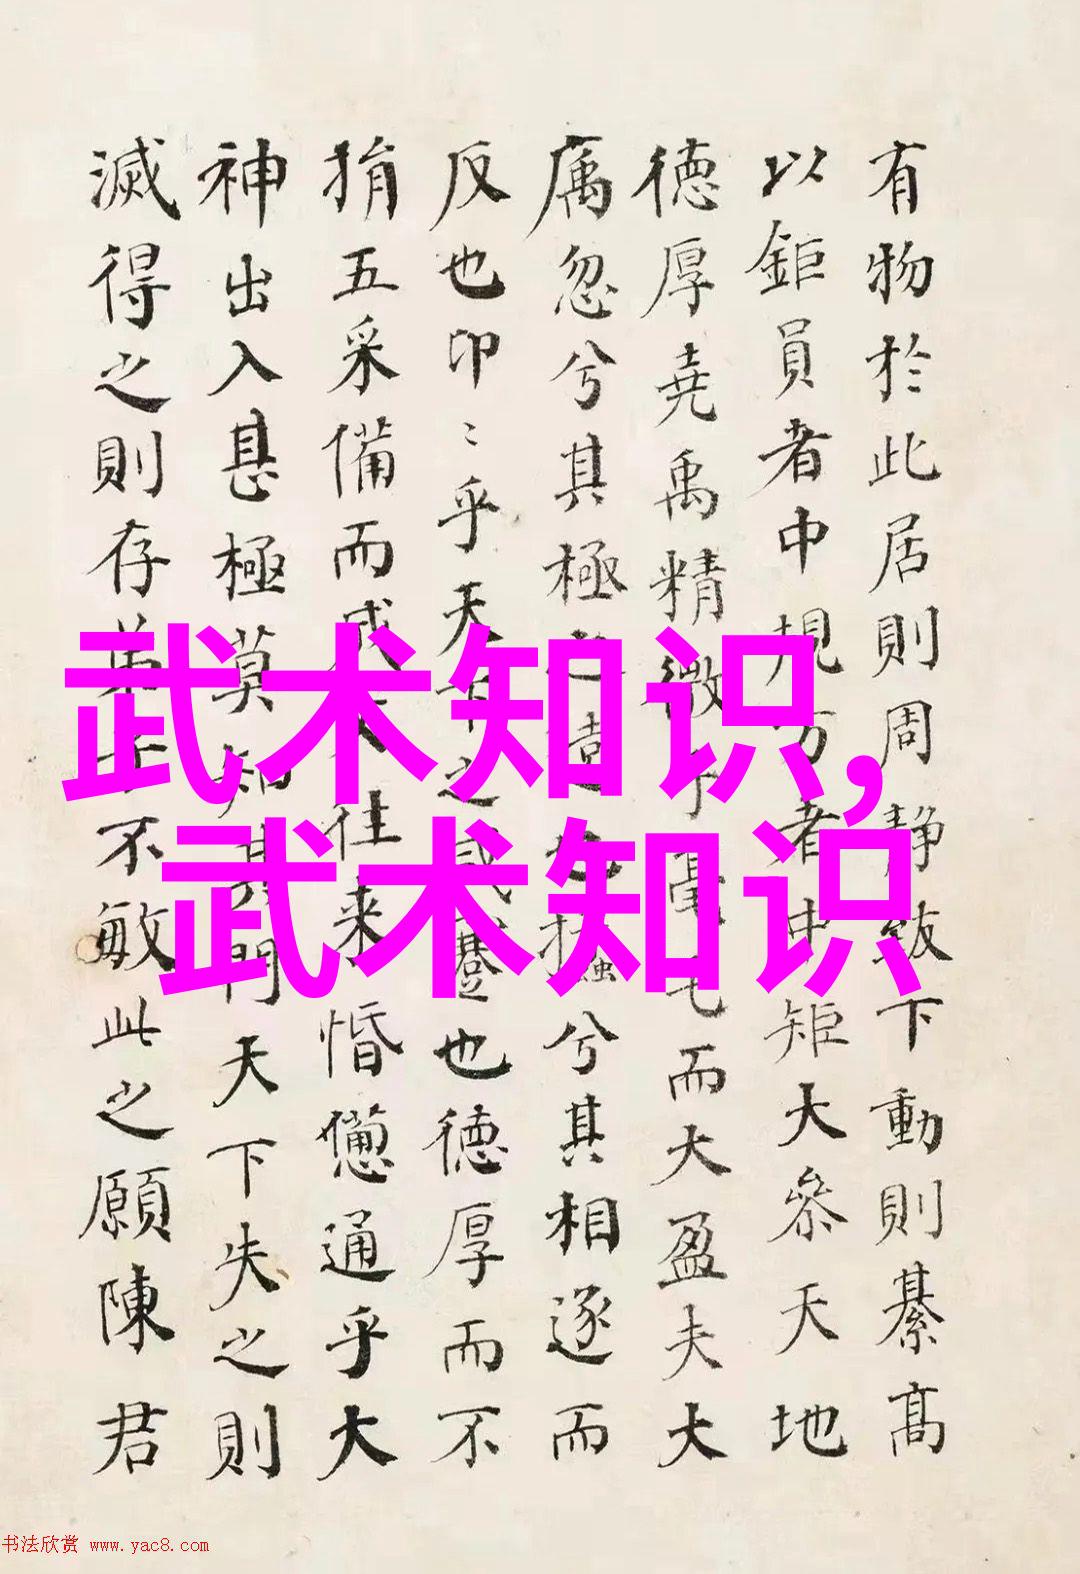 有物於此居則周靜致下動則綦高
以鉅員者中規方者中矩大參天地
德厚堯禹精微乎毫毛而大盈夫大
庽忽兮其極之遠也攭兮其相逐而
反也卬〻乎天下之咸蹇也德厚而不
捐五采備而成文往來惛憊通乎大
神出入甚極莫知其門天下失之則
滅得之則存弟子不敏此之願陳君
武术知识,
武术知识
书法欣赏 www.yac8.com